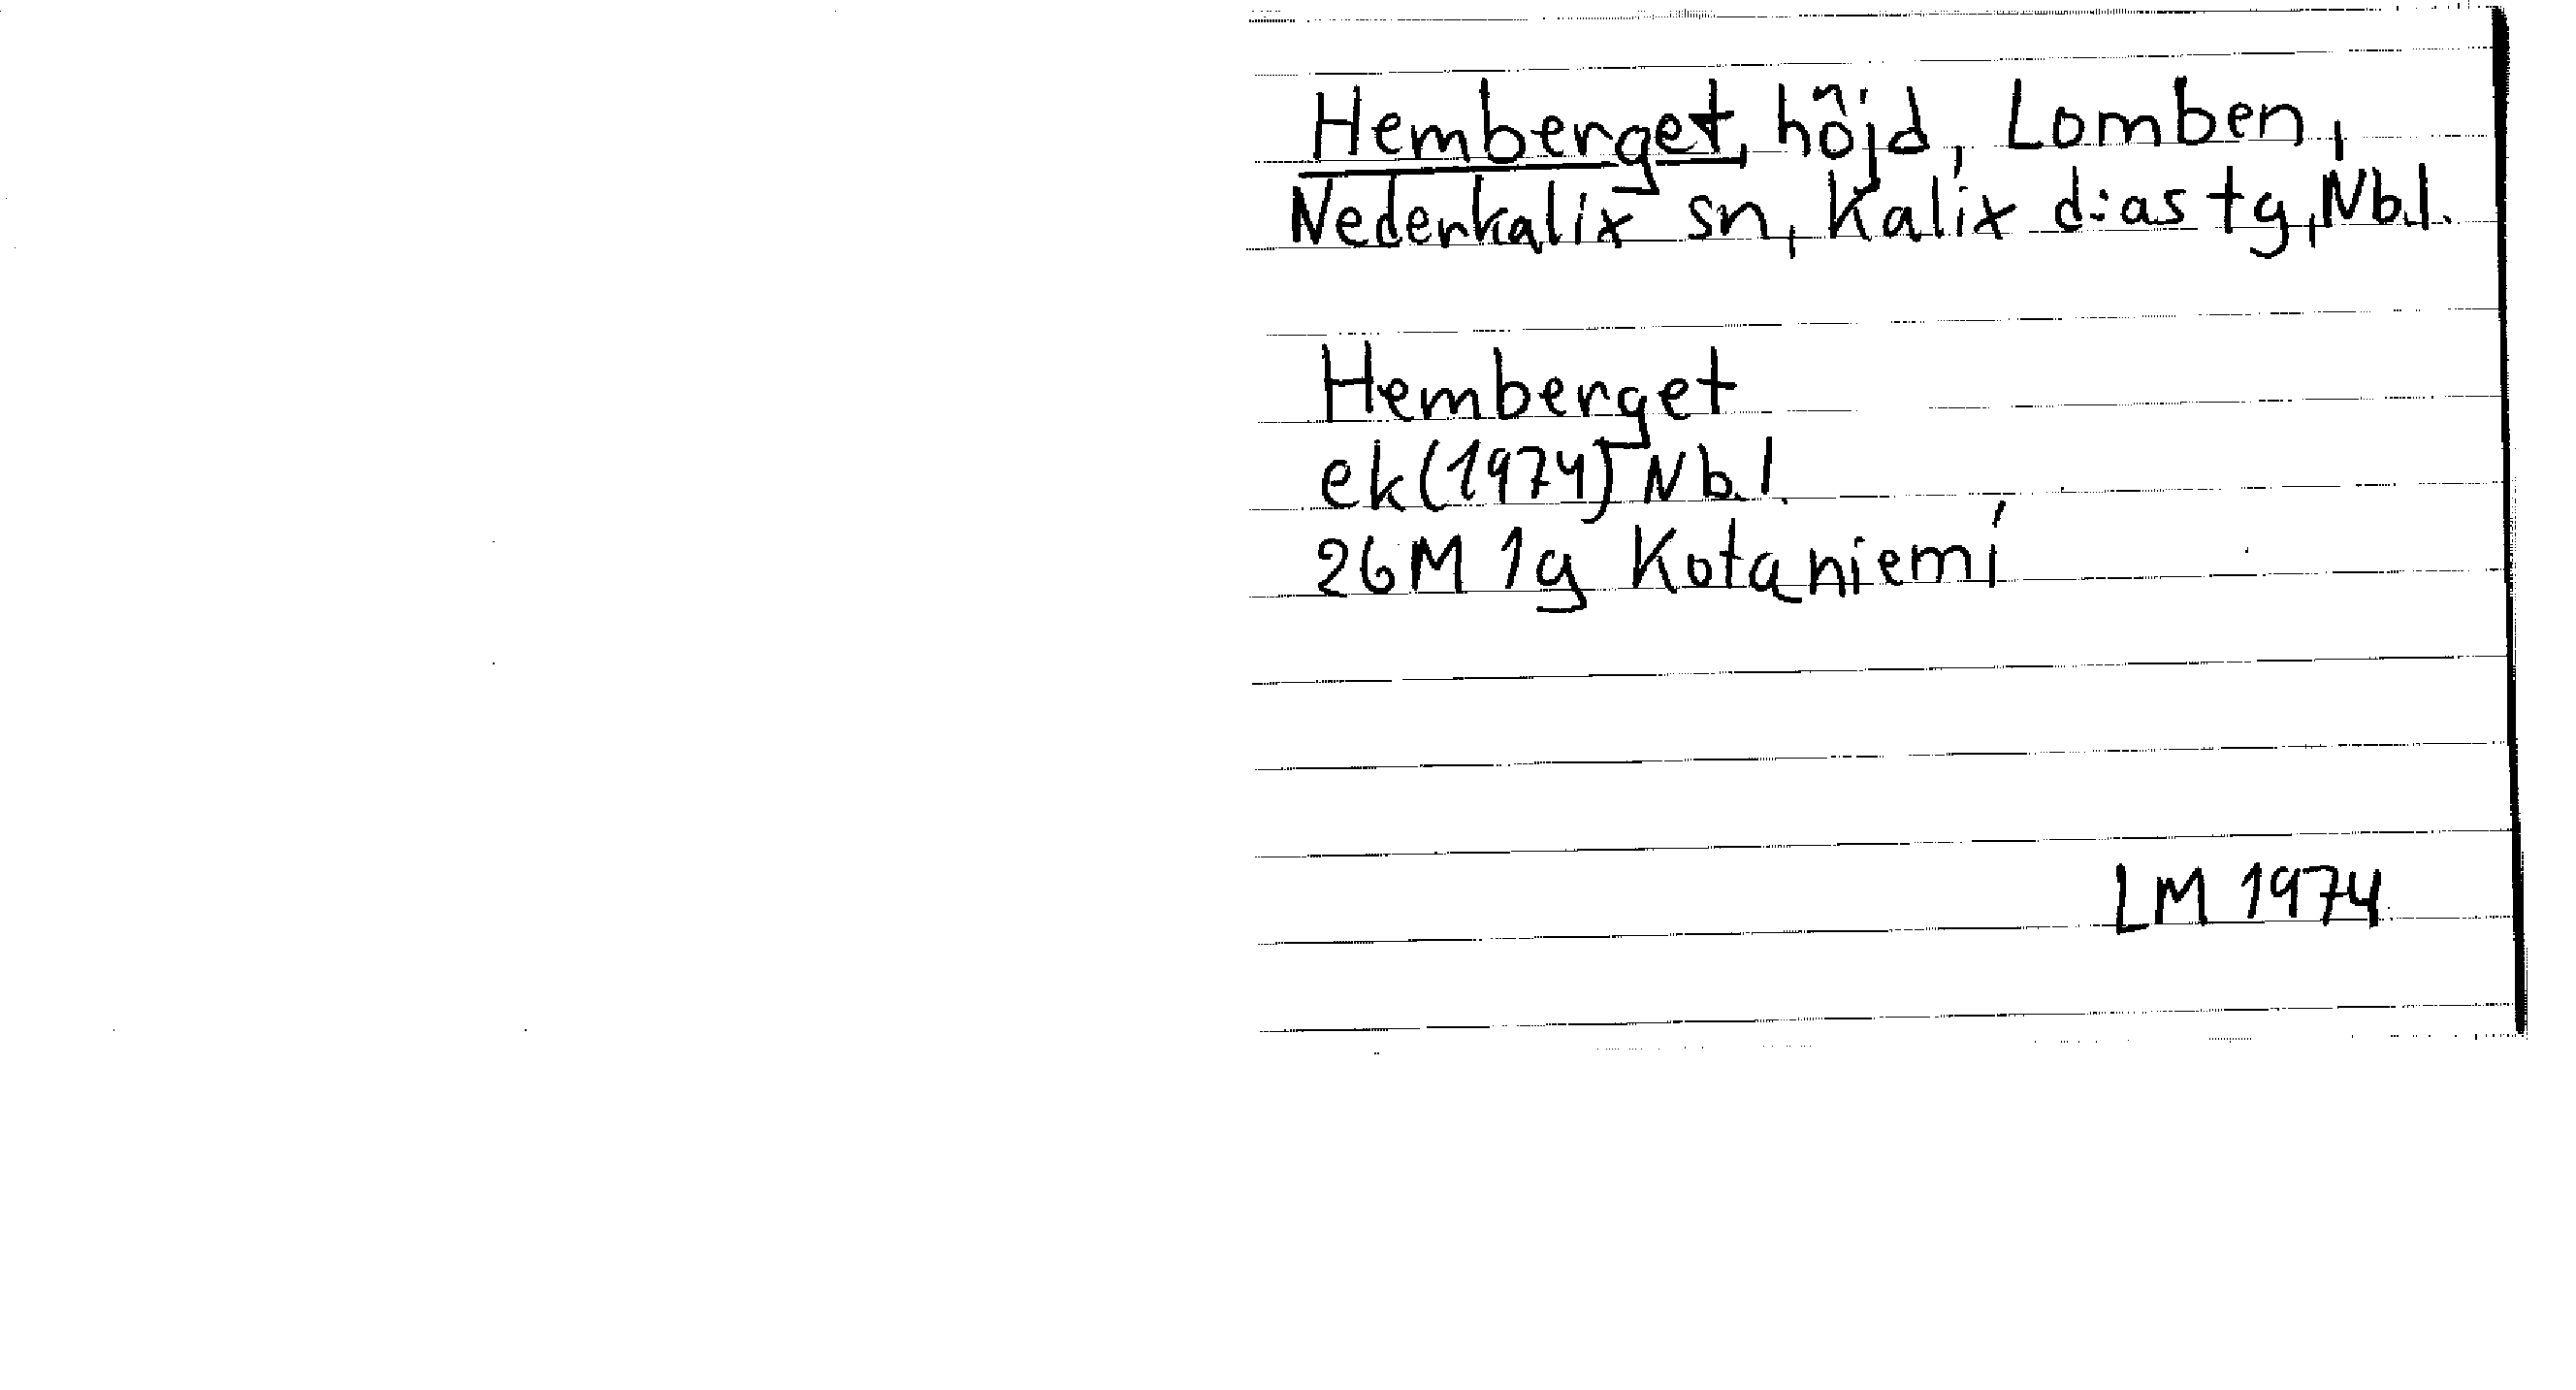 Hemberget, höjd, Lomben,
Nederkalix sn, Kalix d:as tg, Nb.l.
Hemberget
ek (1974) Nb.l.
26M 1g Kotaniemi
LM 1974